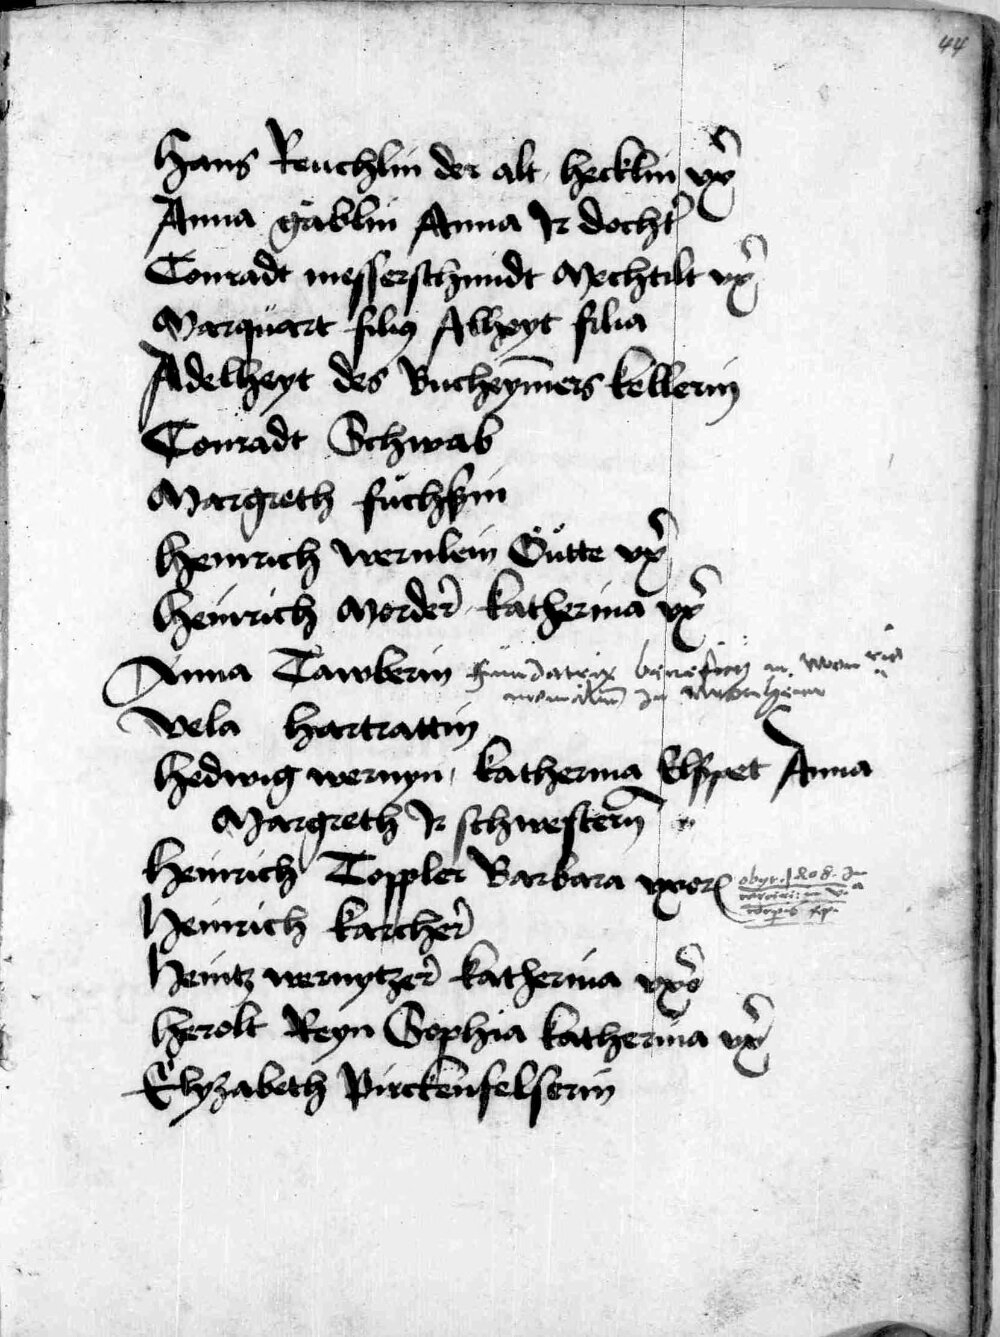 44
Hans Reuchlin der alt hecklin vx̄
Anna gäblin Anna Ir docht̄
Conradt messerschmidt Mechtilt vx̄
Marquart filiꝰ Alheyt filia
Adelheyt des Bucheym̄ers kellerin
Conradt Schwab
Margreth füchssin
Heinrich wernlein Gütte vx̄
Heinrich Morder̄ katherina vx̄
Anna Tawberin fundatrix beneficij in
In
vela hartrattin
Hedwig wernyn, katherina Elspet Anna
Margreth Ir schwestern̄
Heinrich Toppler Barbara vxor obyt 1408 In
Heinrich karcher̄
Heintz wernytzer̄ katherina vxo
Herolt Reyn Sophia katherina vx̄
Elyzabeth Pirckenfelserin